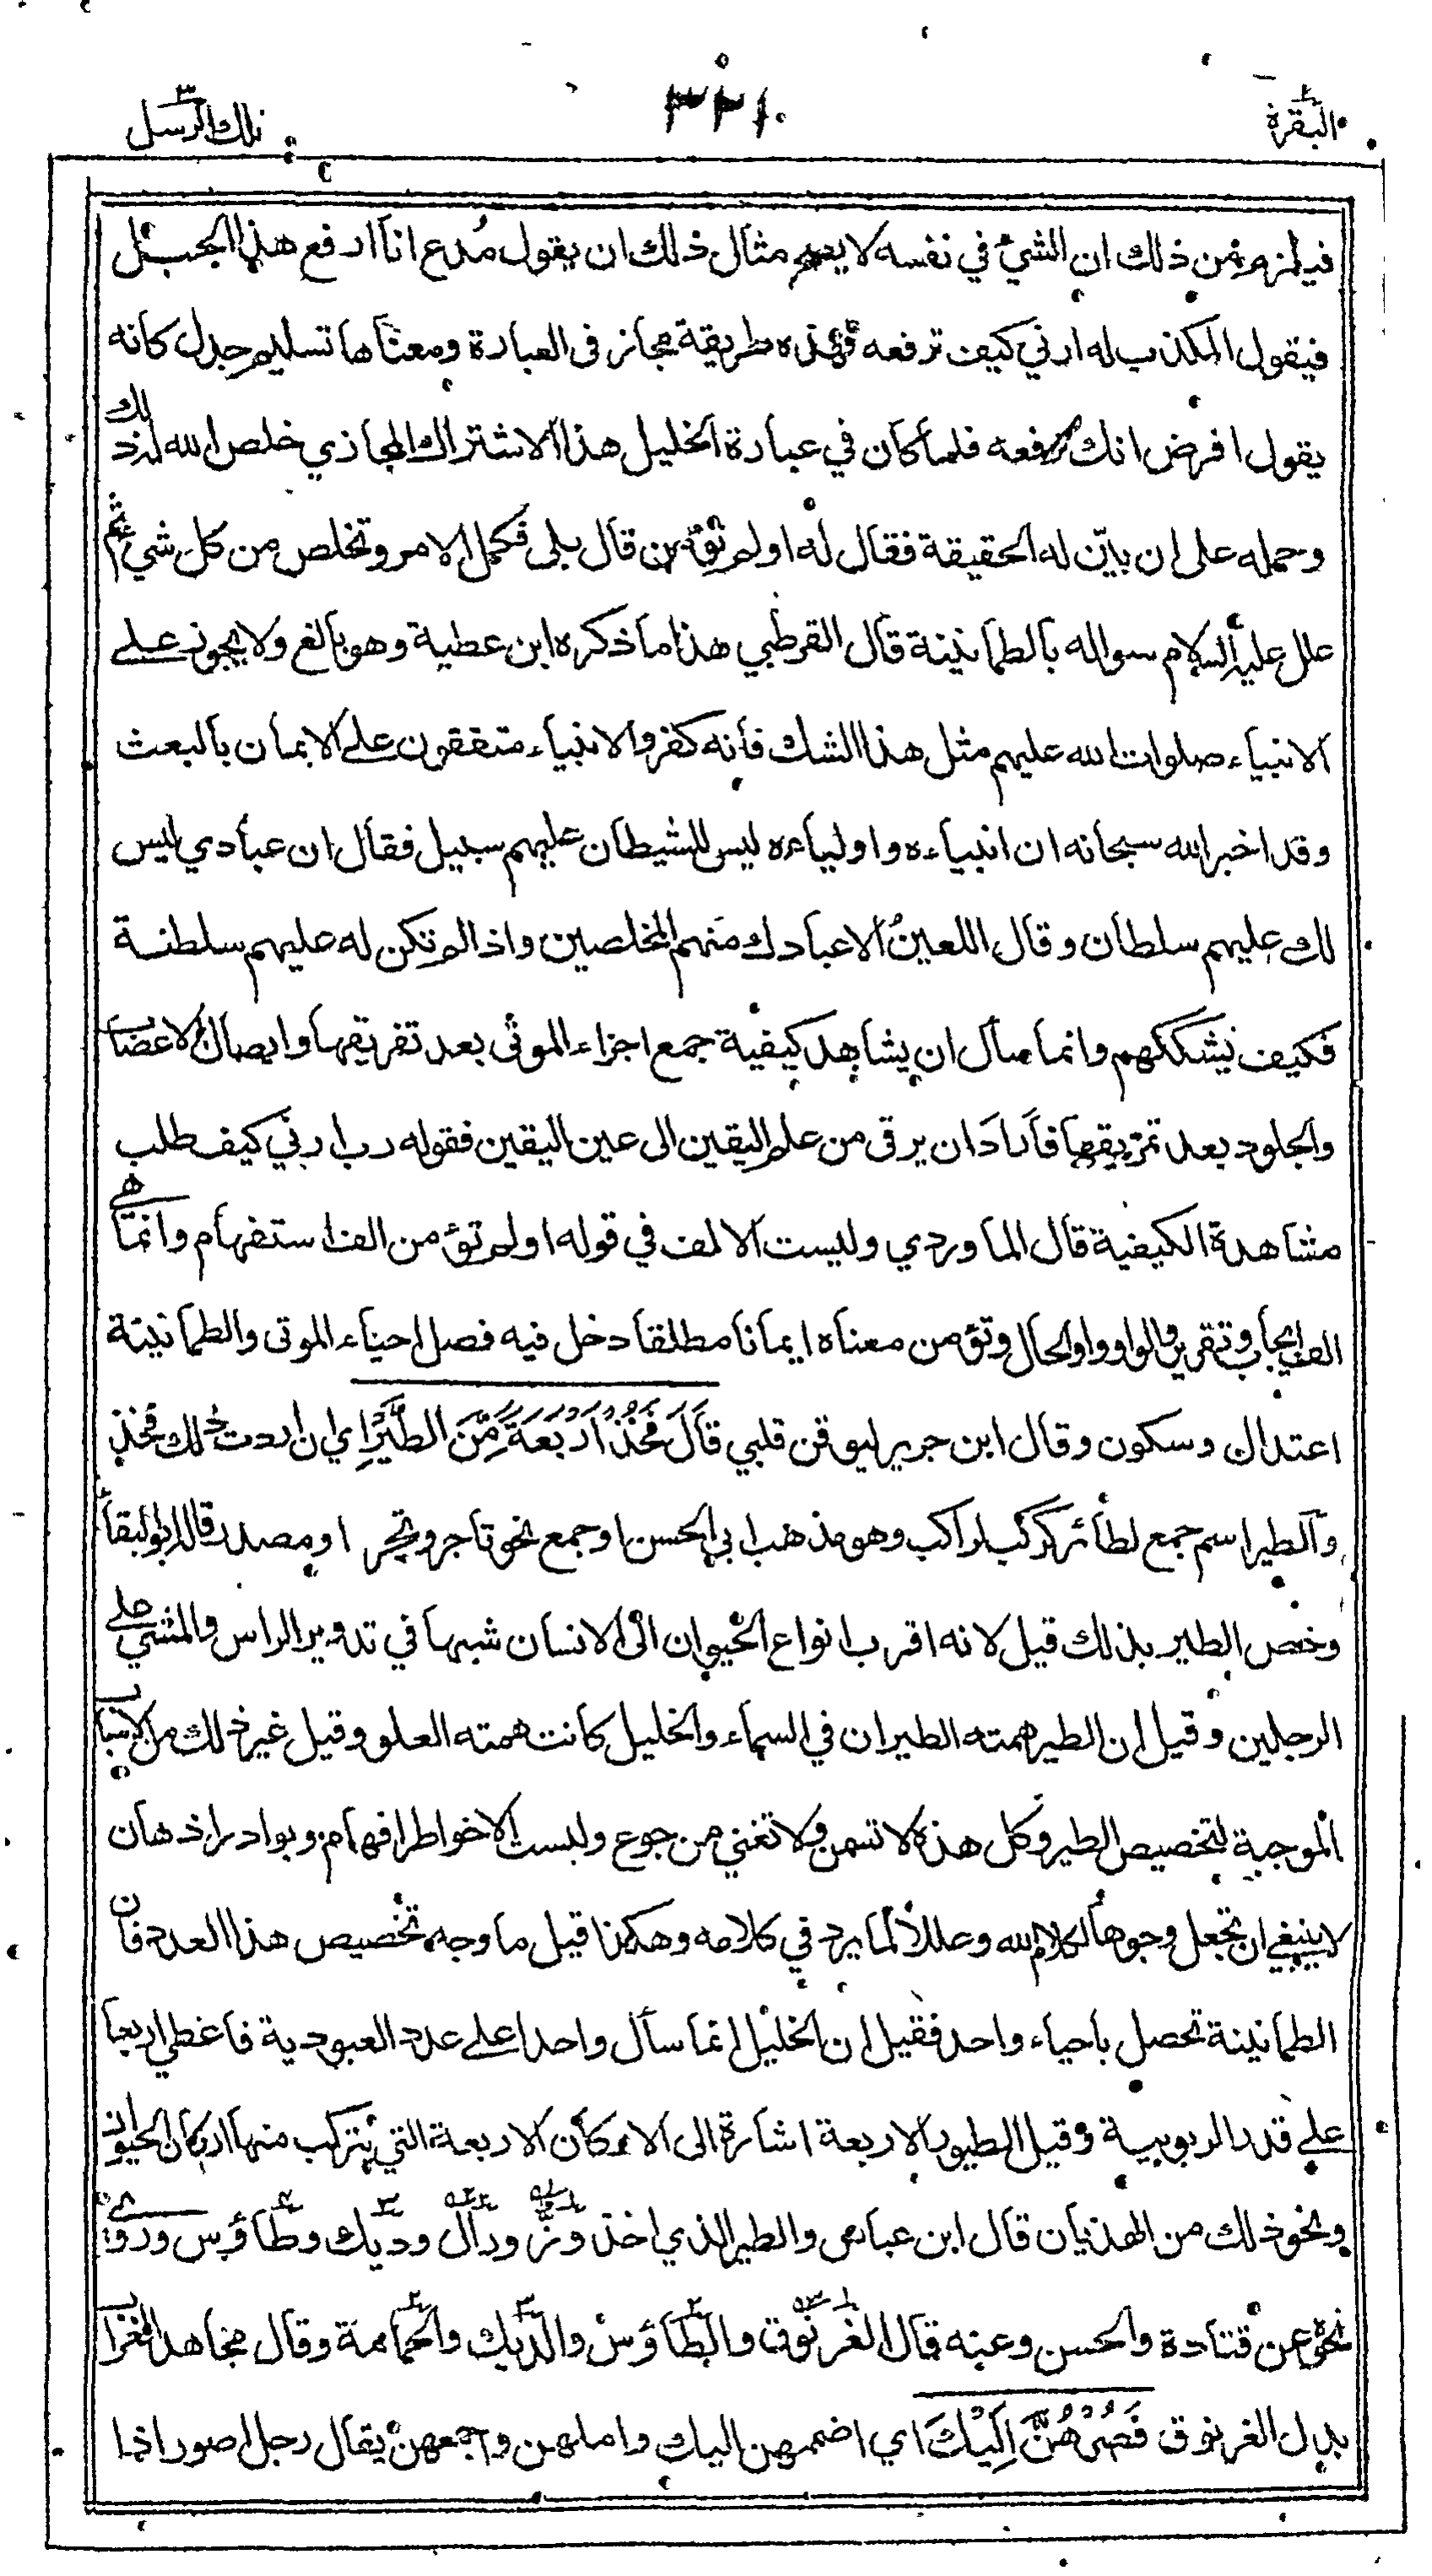 البقرة ٢
٣٢١
تلك الرسل ٣
فيلزم من ذلك ان الشيء في نفسه لا يصح مثال ذلك ان يقول مُدع انا ارفع هذا الجبل
فيقول المكذب له ارني كيف ترفعه فهذه طريقة مجاز في العبارة ومعناها تسليم جدل كانه
يقول افرض انك ترفعه فلما كان في عبارة الخليل هذا الاشتراك المجازي خلص الله له ذلك
وحمله على ان بيّن له الحقيقة فقال له اولم تؤمن قال بلى فكمل الامر وتخلص من كل شيء ثم
علل عليه السلام سواله بالطمانينة قال القرطبي هذا ما ذكره ابن عطية وهو بالغ ولا يجوز على
الانبياء صلوات الله عليهم مثل هذا الشك فانه كفر والانبياء متفقون على الايمان بالبعث
وقد اخبر الله سبحانه ان انبياءه واولياءه ليس للشيطان عليهم سبيل فقال ان عبادي ليس
لك عليهم سلطان وقال اللعين الا عبادك منهم المخلصين واذا لم تكن له عليهم سلطنة
فكيف يشككهم وانما سأل ان يشاهد كيفية جمع اجزاء الموتى بعد تفريقها وايصال الاعصاب
والجلود بعد تمزيقها فاراد ان يرقى من علم اليقين الى عين اليقين فقوله رب ارني كيف طلب
مشاهدة الكيفية قال الماوردي وليست الالف في قوله اولم تؤمن الف استفهام وانما هي
الف ايجاب وتقرير والواو واو الحال وتؤمن معناه ايمانا مطلقا دخل فيه فصل احياء الموتى والطمانينة
اعتدال وسكون وقال ابن جرير ليوقن قلبي قَالَ فَخُذْ أَرْبَعَةً مِّنَ الطَّيْرِ اي ان اردت ذلك فخذ
والطير اسم جمع لطائر كركب لراكب وهو مذهب ابي الحسن او جمع نحو تاجر وتجر او مصدر قاله ابو البقاء
وخص الطير بذلك قيل لانه اقرب انواع الحيوان الى الانسان شبها في تدوير الراس والمشي على
الرجلين وقيل ان الطير همته الطيران في السماء والخليل كانت همته العلو وقيل غير ذلك من الاسباب
الموجبة لتخصيص الطير وكل هذه لا تسمن ولا تغني من جوع وليست الا خواطر افهام وبوادر اذهان
لا ينبغي ان تجعل وجوها لكلام الله وعللا لما يرد في كلامه وهكذا قيل ما وجه تخصيص هذا العدد فان
الطمانينة تحصل باحياء واحد فقيل ان الخليل انما سأل واحدا على عدد العبودية فاعطي اربعا
على قدر الربوبية وقيل الطيور الاربعة اشارة الى الاركان الاربعة التي يتركب منها اركان الحيوان
ونحو ذلك من الهذيان قال ابن عباس والطير الذي اخذ وزٌّ ورال وديك وطاؤس وروي
نحوه عن قتادة والحسن وعنه قال الغرنوق والطاؤس والديك والحمامة وقال مجاهد الغراب
بدل الغرنوق فَصُرْهُنَّ إِلَيْكَ اي اضممهن اليك واملهن واجمعهن يقال رجل اصور اذا